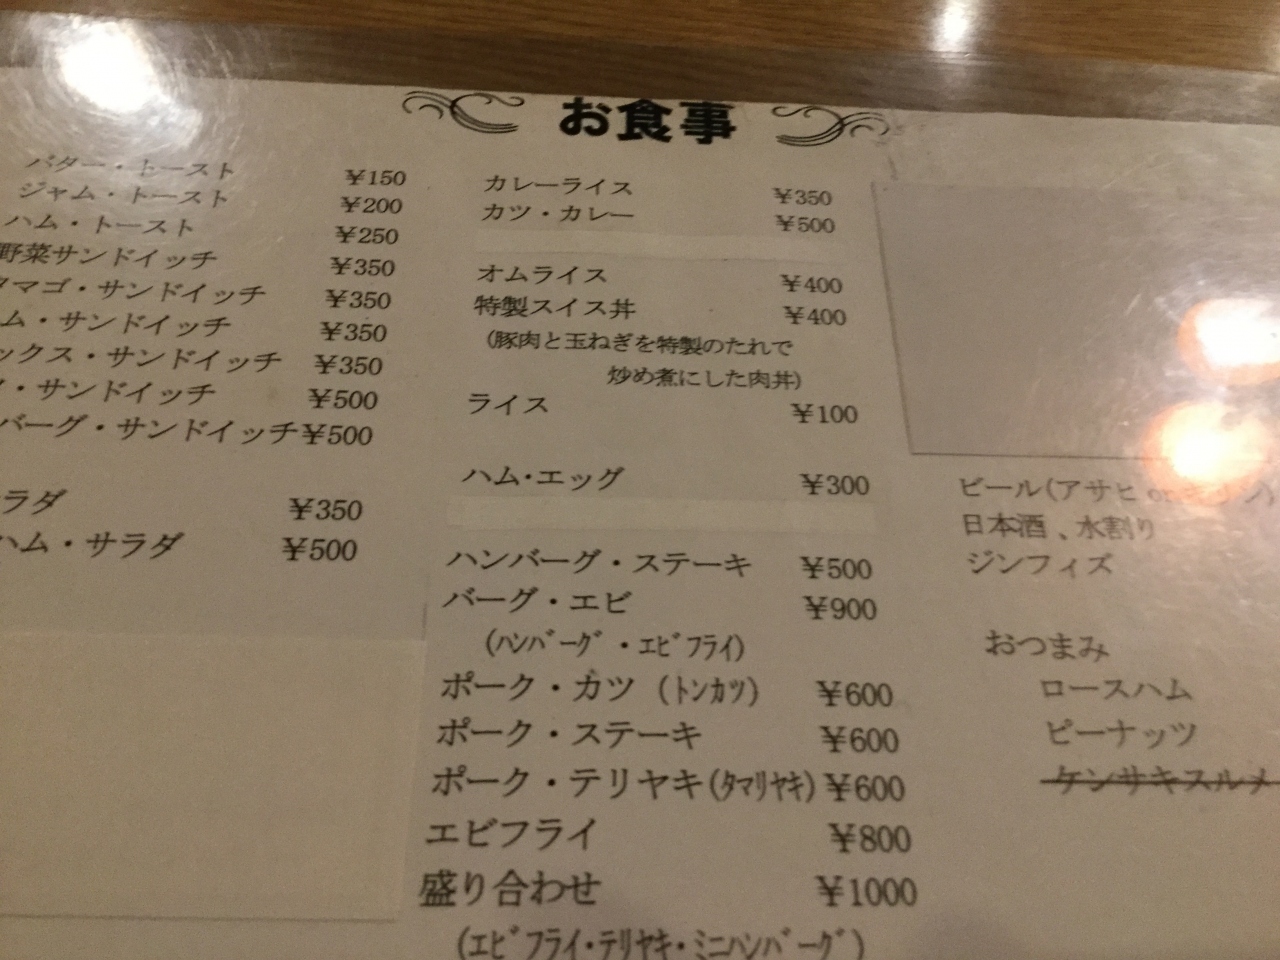 お食事
バター・トースト ¥150
ジャム・トースト ¥200
ハム・トースト ¥250
野菜サンドイッチ ¥350
タマゴ・サンドイッチ ¥350
ム・サンドイッチ ¥350
ックス・サンドイッチ ¥350
・サンドイッチ ¥500
バーグ・サンドイッチ ¥500
ラダ ¥350
ハム・サラダ ¥500
カレーライス ¥350
カツ・カレー ¥500
オムライス ¥400
特製スイス丼 ¥400
(豚肉と玉ねぎを特製のたれで
炒め煮にした肉丼)
ライス ¥100
ハム・エッグ ¥300
ハンバーグ・ステーキ ¥500
バーグ・エビ ¥900
(ﾊﾝﾊﾞｰｸﾞ・ｴﾋﾞﾌﾗｲ)
ポーク・カツ (ﾄﾝｶﾂ) ¥600
ポーク・ステーキ ¥600
ポーク・テリヤキ(ﾀﾏﾘﾔｷ) ¥600
エビフライ ¥800
盛り合わせ ¥1000
(ｴﾋﾞﾌﾗｲ・ﾃﾘﾔｷ・ﾐﾆﾊﾝﾊﾞｰｸﾞ)
ビール(アサヒ or キリン)
日本酒、水割り
ジンフィズ
おつまみ
ロースハム
ピーナッツ
ケンサキスルメ